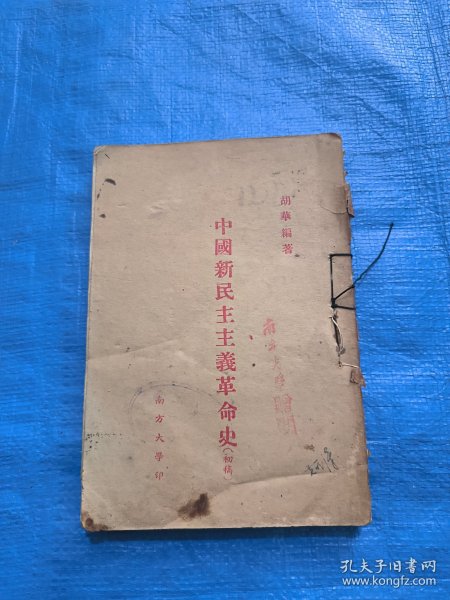 胡華編著
中國新民主主義革命史(初稿)
南方大學印
孔夫子旧书网
www.kongfz.com